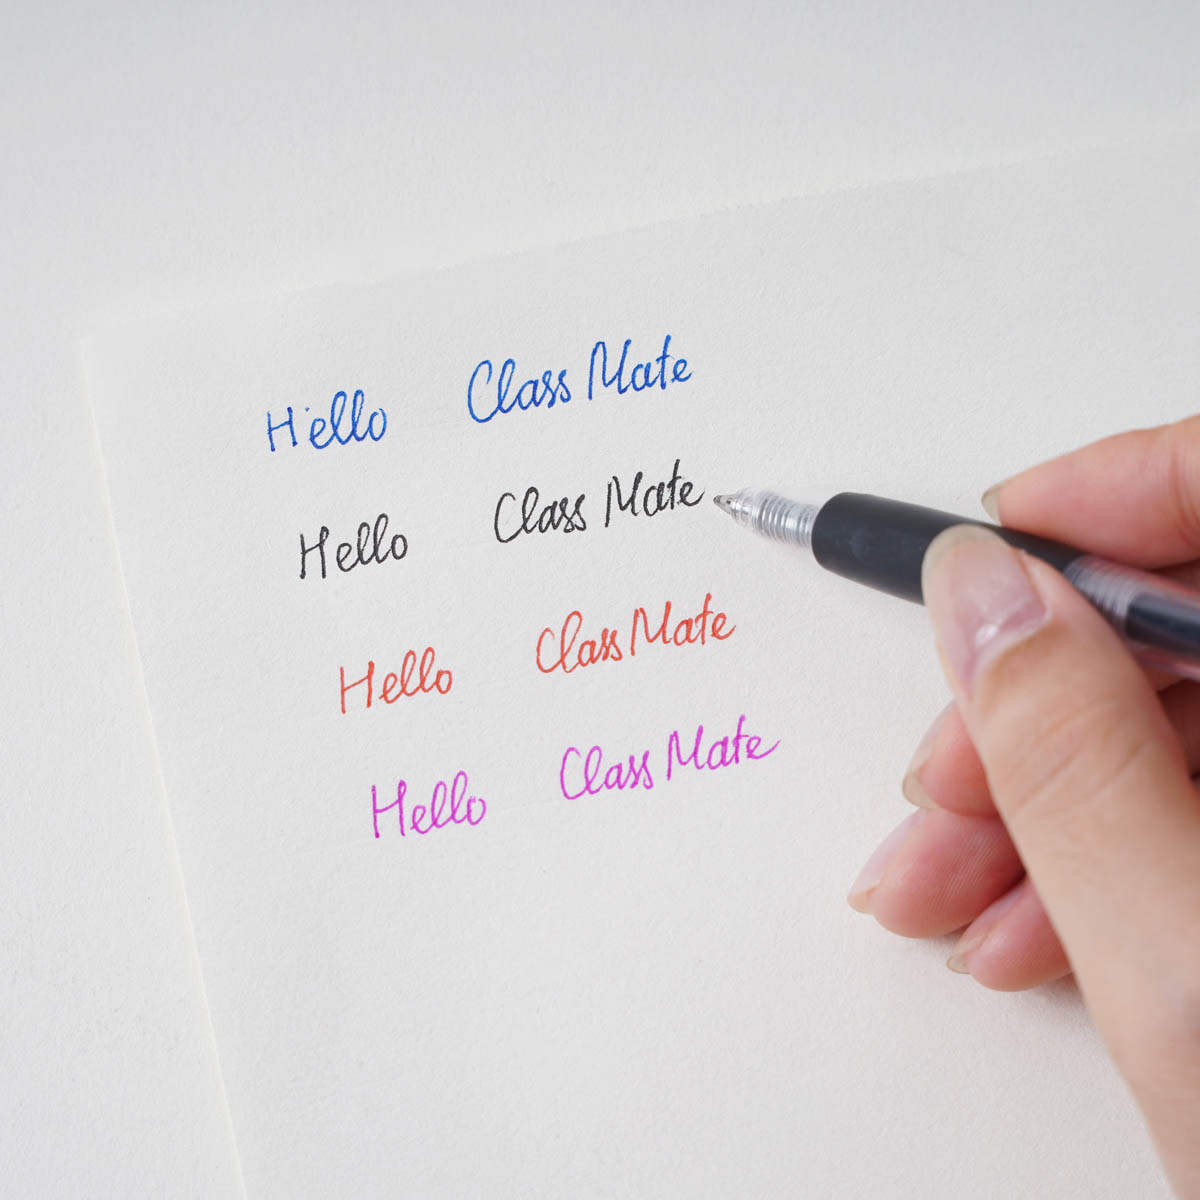 Hello Class Mate
Hello Class Mate
Hello Class Mate
Hello Class Mate